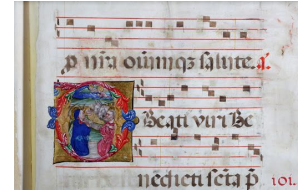 p nr̄a omniūqꝫ salute. a.
Beati viri Be
nedicti sc̄ta p̄ 101.